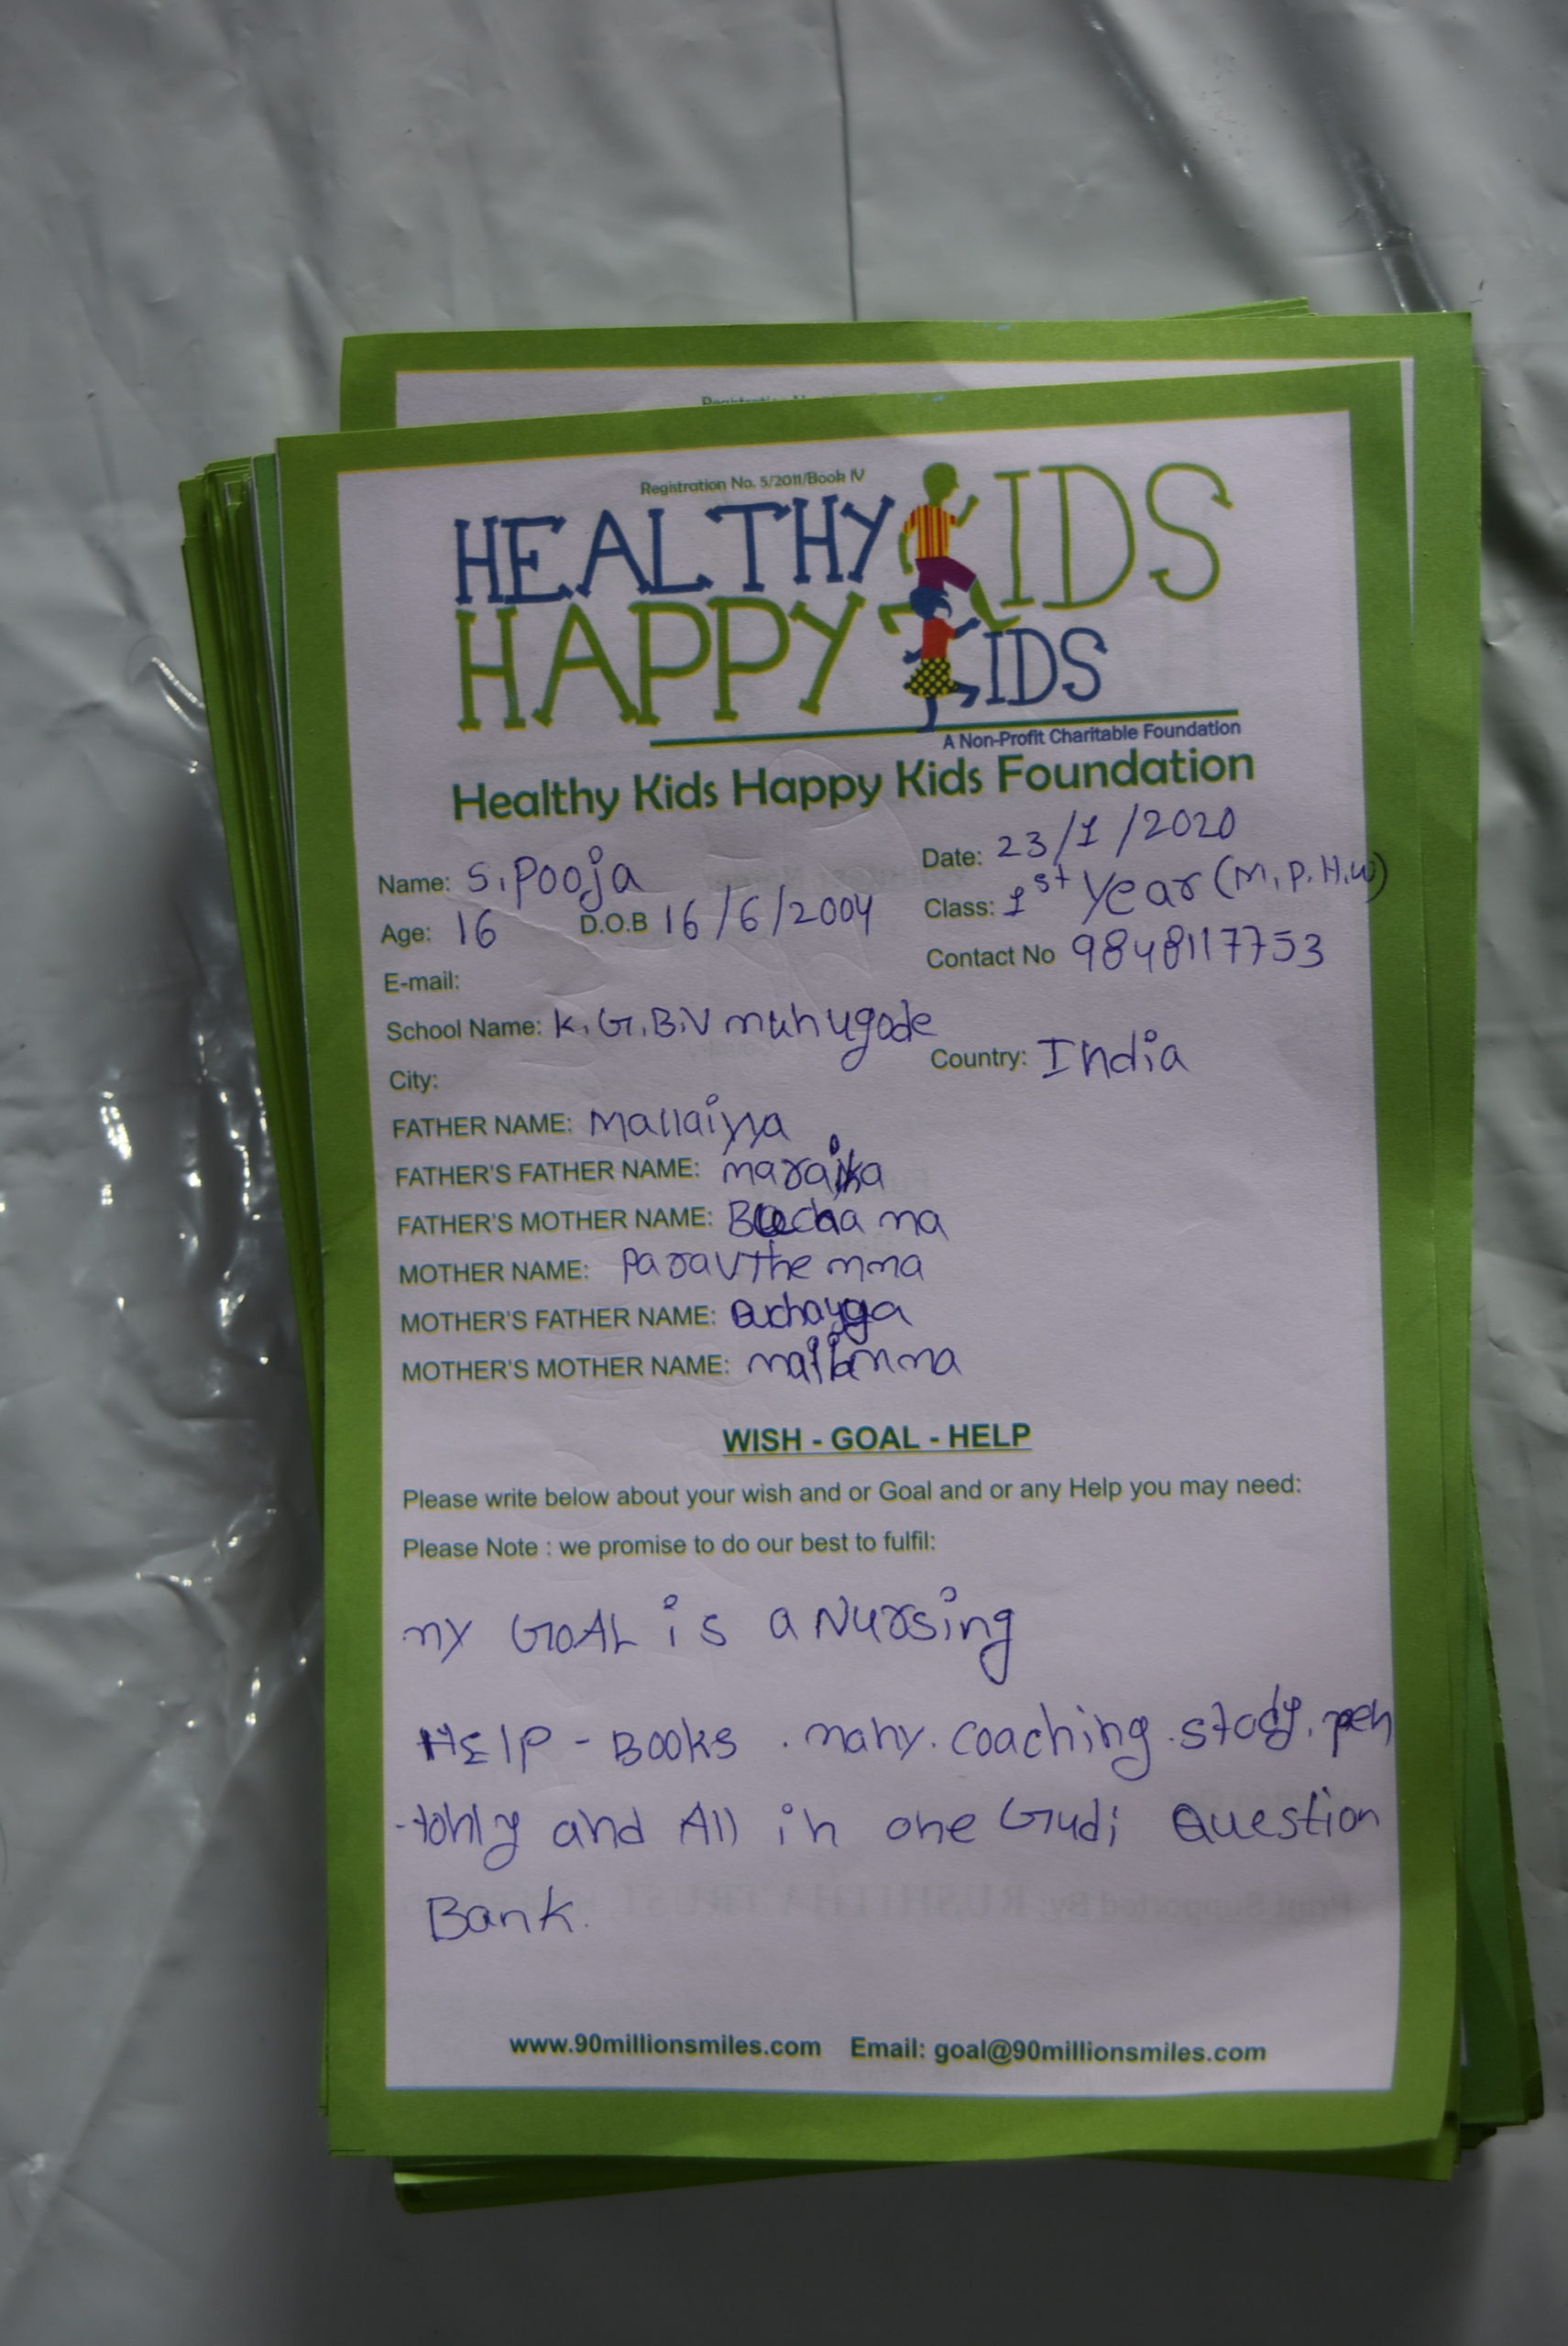 Registration No. 5/2011/Book IV
HEALTHY KIDS
HAPPY KIDS
A Non-Profit Charitable Foundation
Healthy Kids Happy Kids Foundation
Name: S. Pooja Date: 23/1/2020
Age: 16 D.O.B 16/6/2004 Class: 1st Year (M.P.H.W)
E-mail: Contact No 9848117753
School Name: K.G.B.V munugode
City: Country: India
FATHER NAME: Mallaiyya
FATHER'S FATHER NAME:
FATHER'S MOTHER NAME:
MOTHER NAME: Paravthe mma
MOTHER'S FATHER NAME:
MOTHER'S MOTHER NAME:
WISH - GOAL - HELP
Please write below about your wish and or Goal and or any Help you may need:
Please Note : we promise to do our best to fulfil:
my GOAL is a Nursing
HElP - Books . many . coaching . stody . pen
-tonly and All in one Gudi Question
Bank.
www.90millionsmiles.com Email: goal@90millionsmiles.com